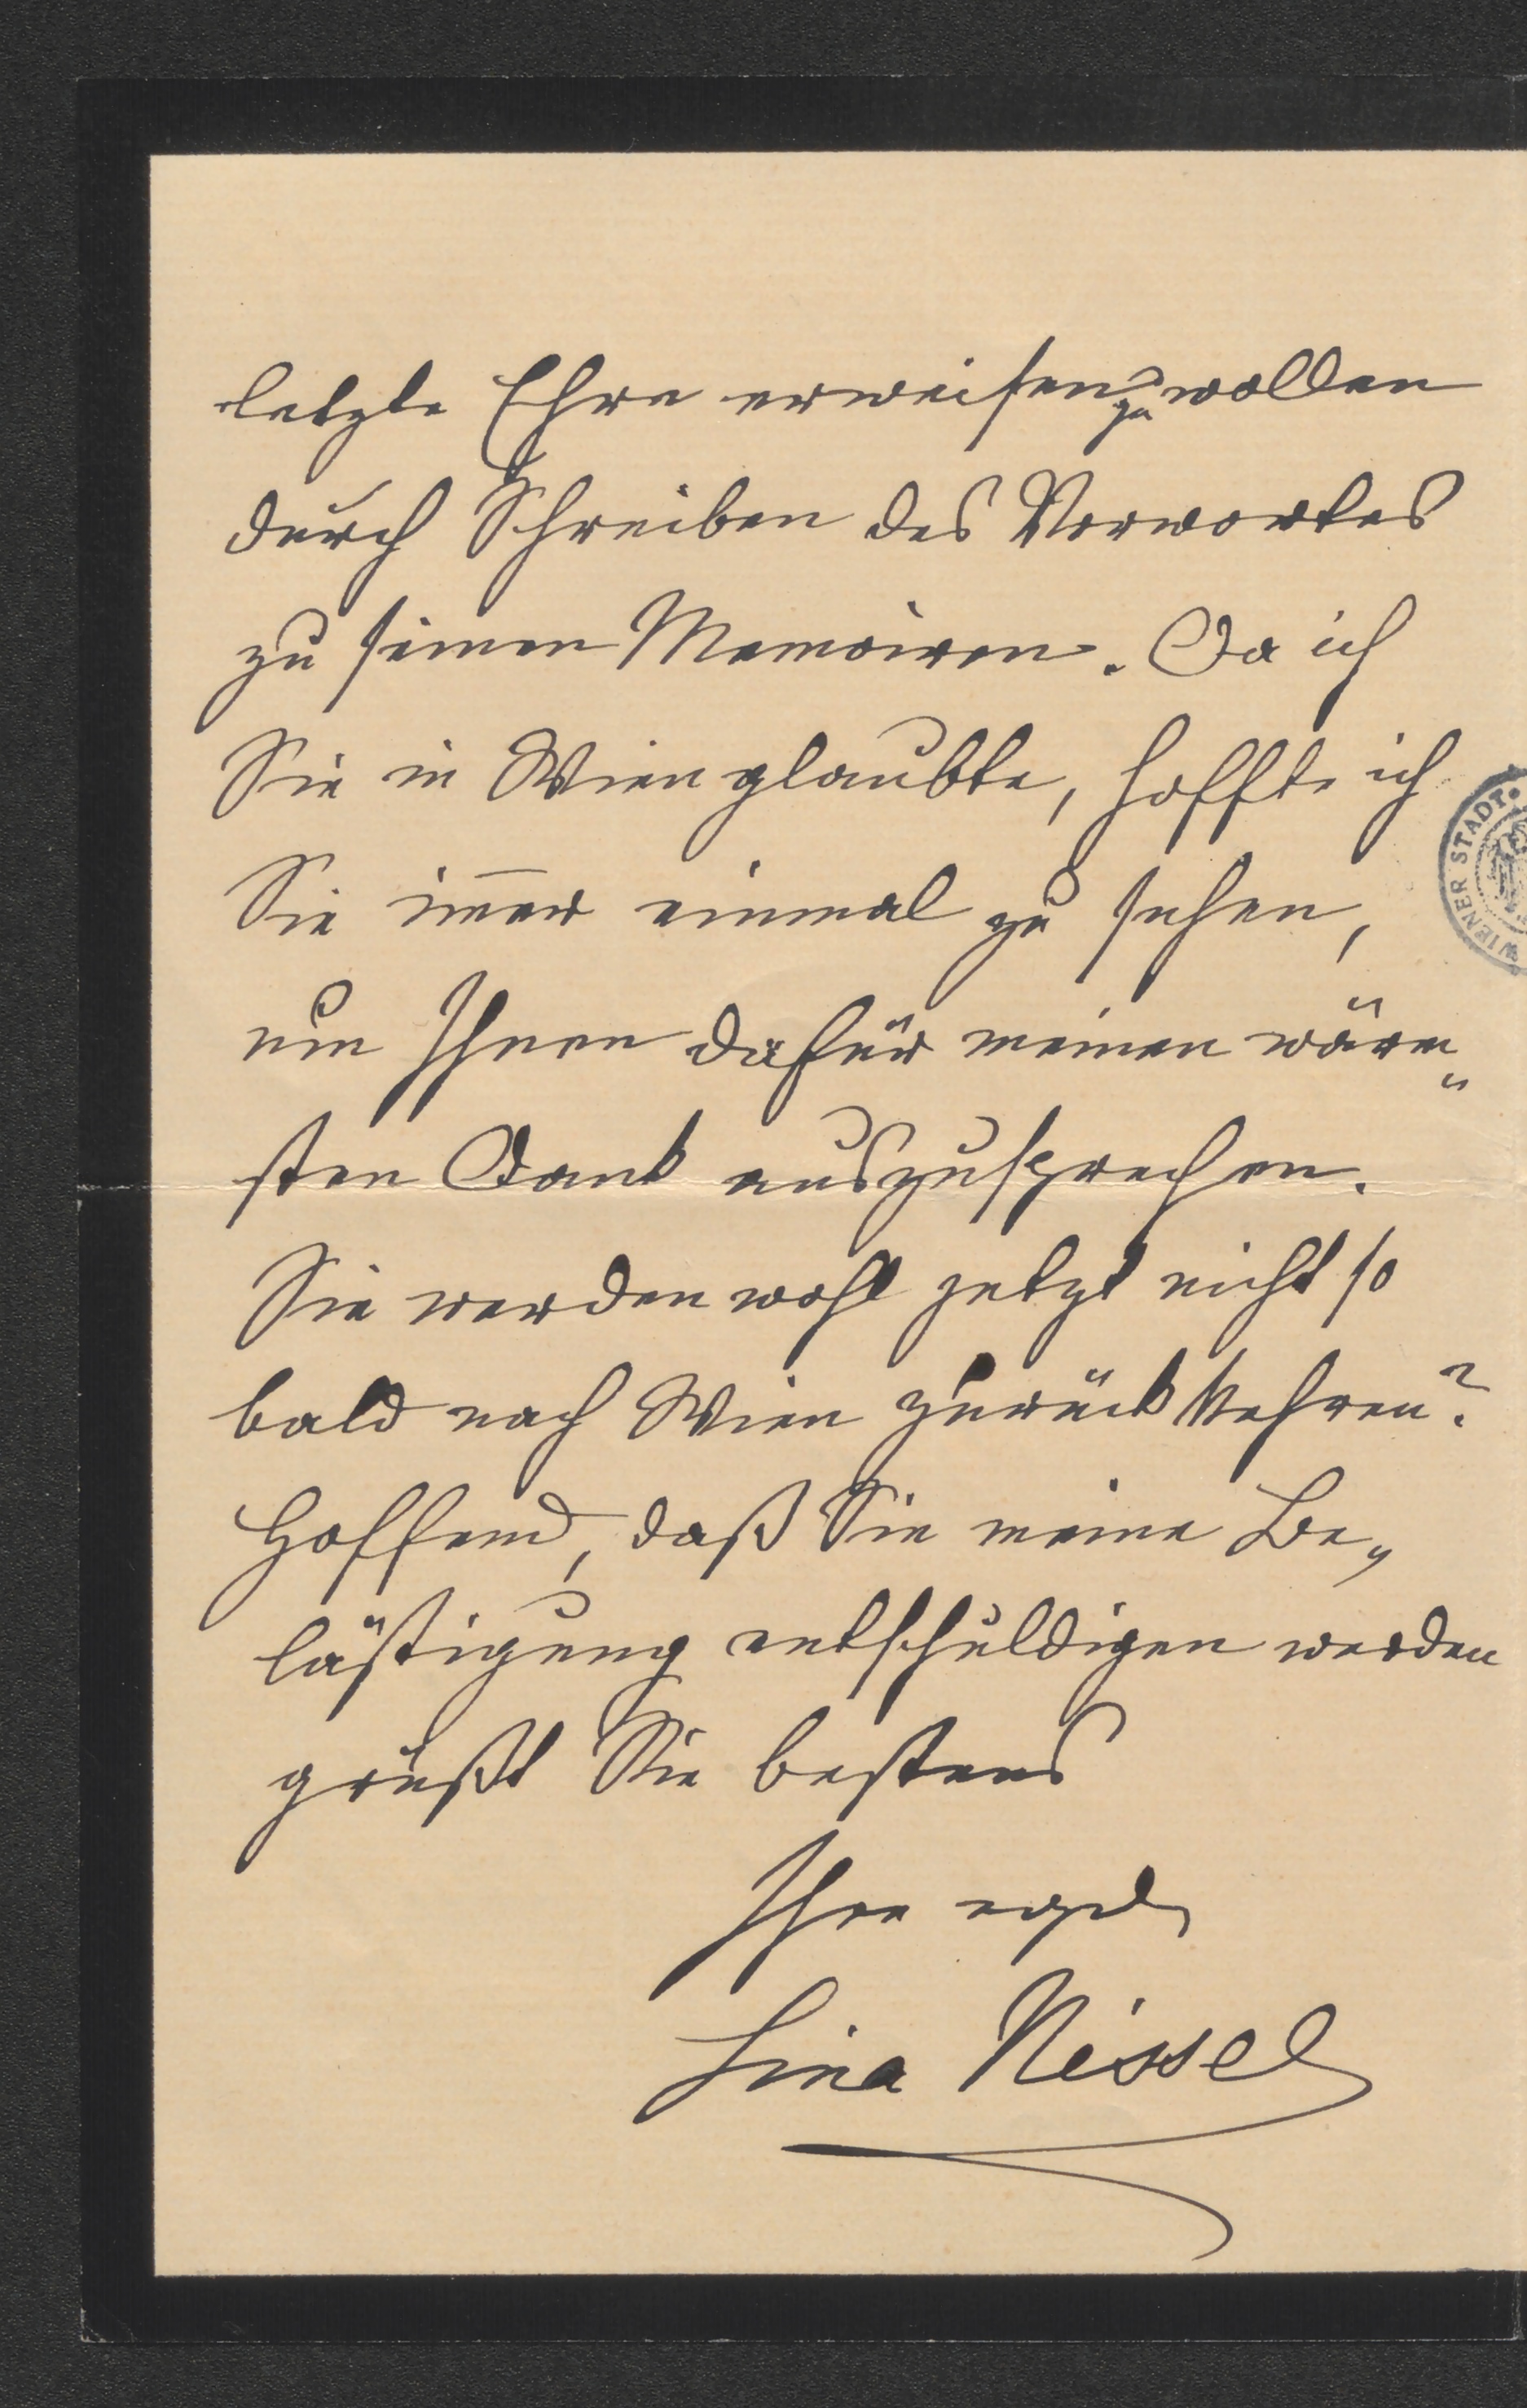 letzte Ehre erweisen zu wollen
durch Schreiben des Vorwortes
zu seinen Memoiren. Da ich
Sie in Wien glaubte, hoffte ich
Sie im̅er einmal zu sehen,
um Ihnen dafür meinen wärm„
sten Dank auszusprechen.
Sie werden wohl jetzt nicht so
bald nach Wien zurückkehren?
Hoffend, daß Sie meine Be„
lästigung entschuldigen werden
grüßt Sie bestens
Ihre ergb
Lina Nissel
WIENER STADT